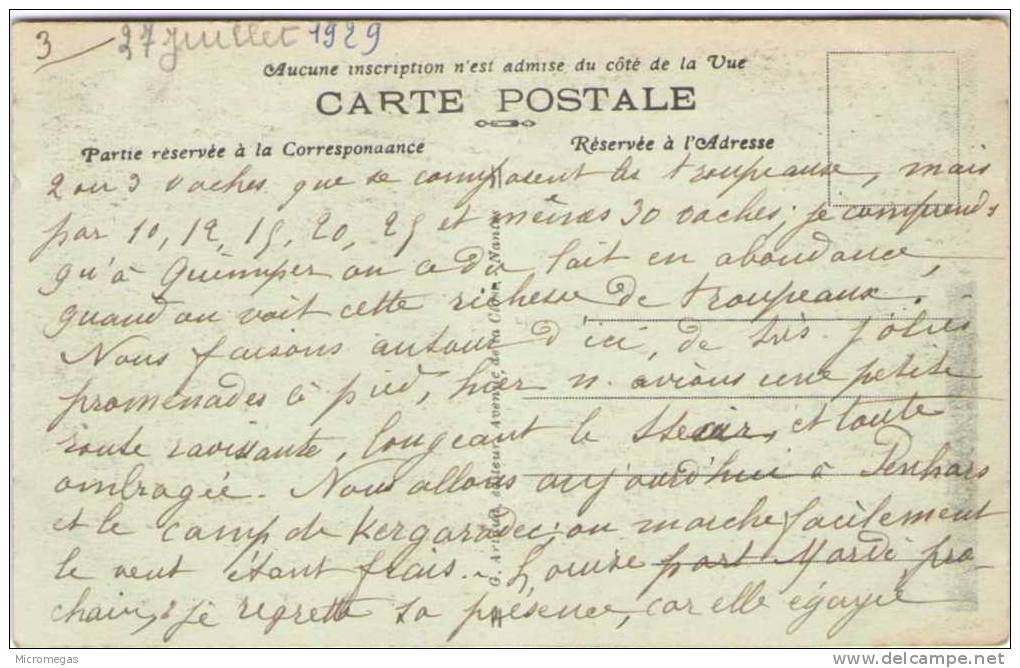 3 27 juillet 1929
Aucune inscription n'est admise du côté de la Vue
CARTE POSTALE
Partie réservée à la Correspondance
Réservée à l'Adresse
2 ou 3 vaches que se composent les troupeaux, mais
par 10, 12, 15, 20, 25 et mêmes 30 vaches; je comprends
qu'à Quimper on a du lait en abondance,
quand on voit cette richesse de troupeaux.
Nous faisons autour d'ici, de très jolies
promenades à pied, hier n. avions une petite
route ravissante, longeant le Steir, et toute
ombragée. Nous allons aujourd'hui à Penhars
et le camp de Kergaradec; on marche facilement
le vent étant frais. - Louise part Mardi pro-
chain, je regrette sa présence, car elle égayie
G. Artaud, éditeur, Avenue de la Close, Nantes
Micromegas
delcampe.net